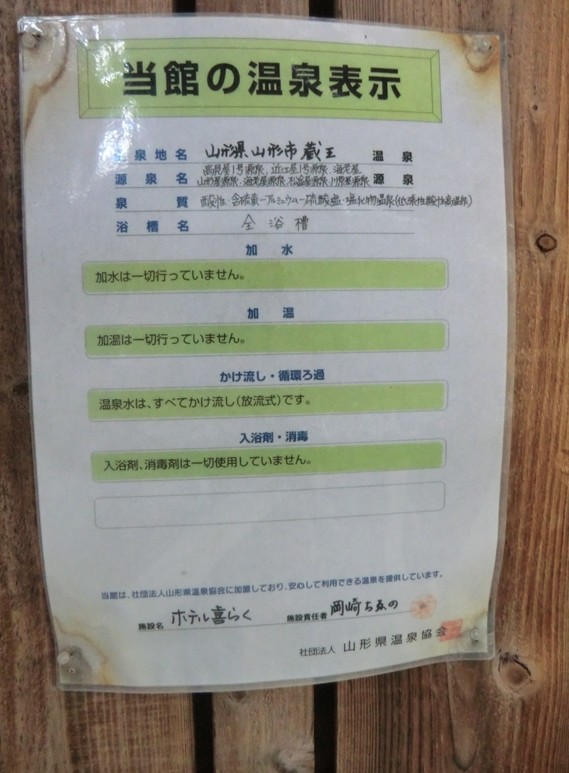 当館の温泉表示
泉地名 山形県山形市蔵王 温泉
源泉名 高見屋1号源泉、近江屋1号源泉、海老屋 源泉
泉質 酸性・含硫黄-アルミニウム-硫酸塩・塩化物温泉(低張性酸性高温泉)
浴槽名 全浴槽
加水
加水は一切行っていません。
加温
加温は一切行っていません。
かけ流し・循環ろ過
温泉水は、すべてかけ流し(放流式)です。
入浴剤・消毒
入浴剤、消毒剤は一切使用していません。
当館は、社団法人山形県温泉協会に加盟しており、安心して利用できる温泉を提供しています。
施設名 ホテル喜らく 施設責任者 岡崎ちゑの
社団法人 山形県温泉協会